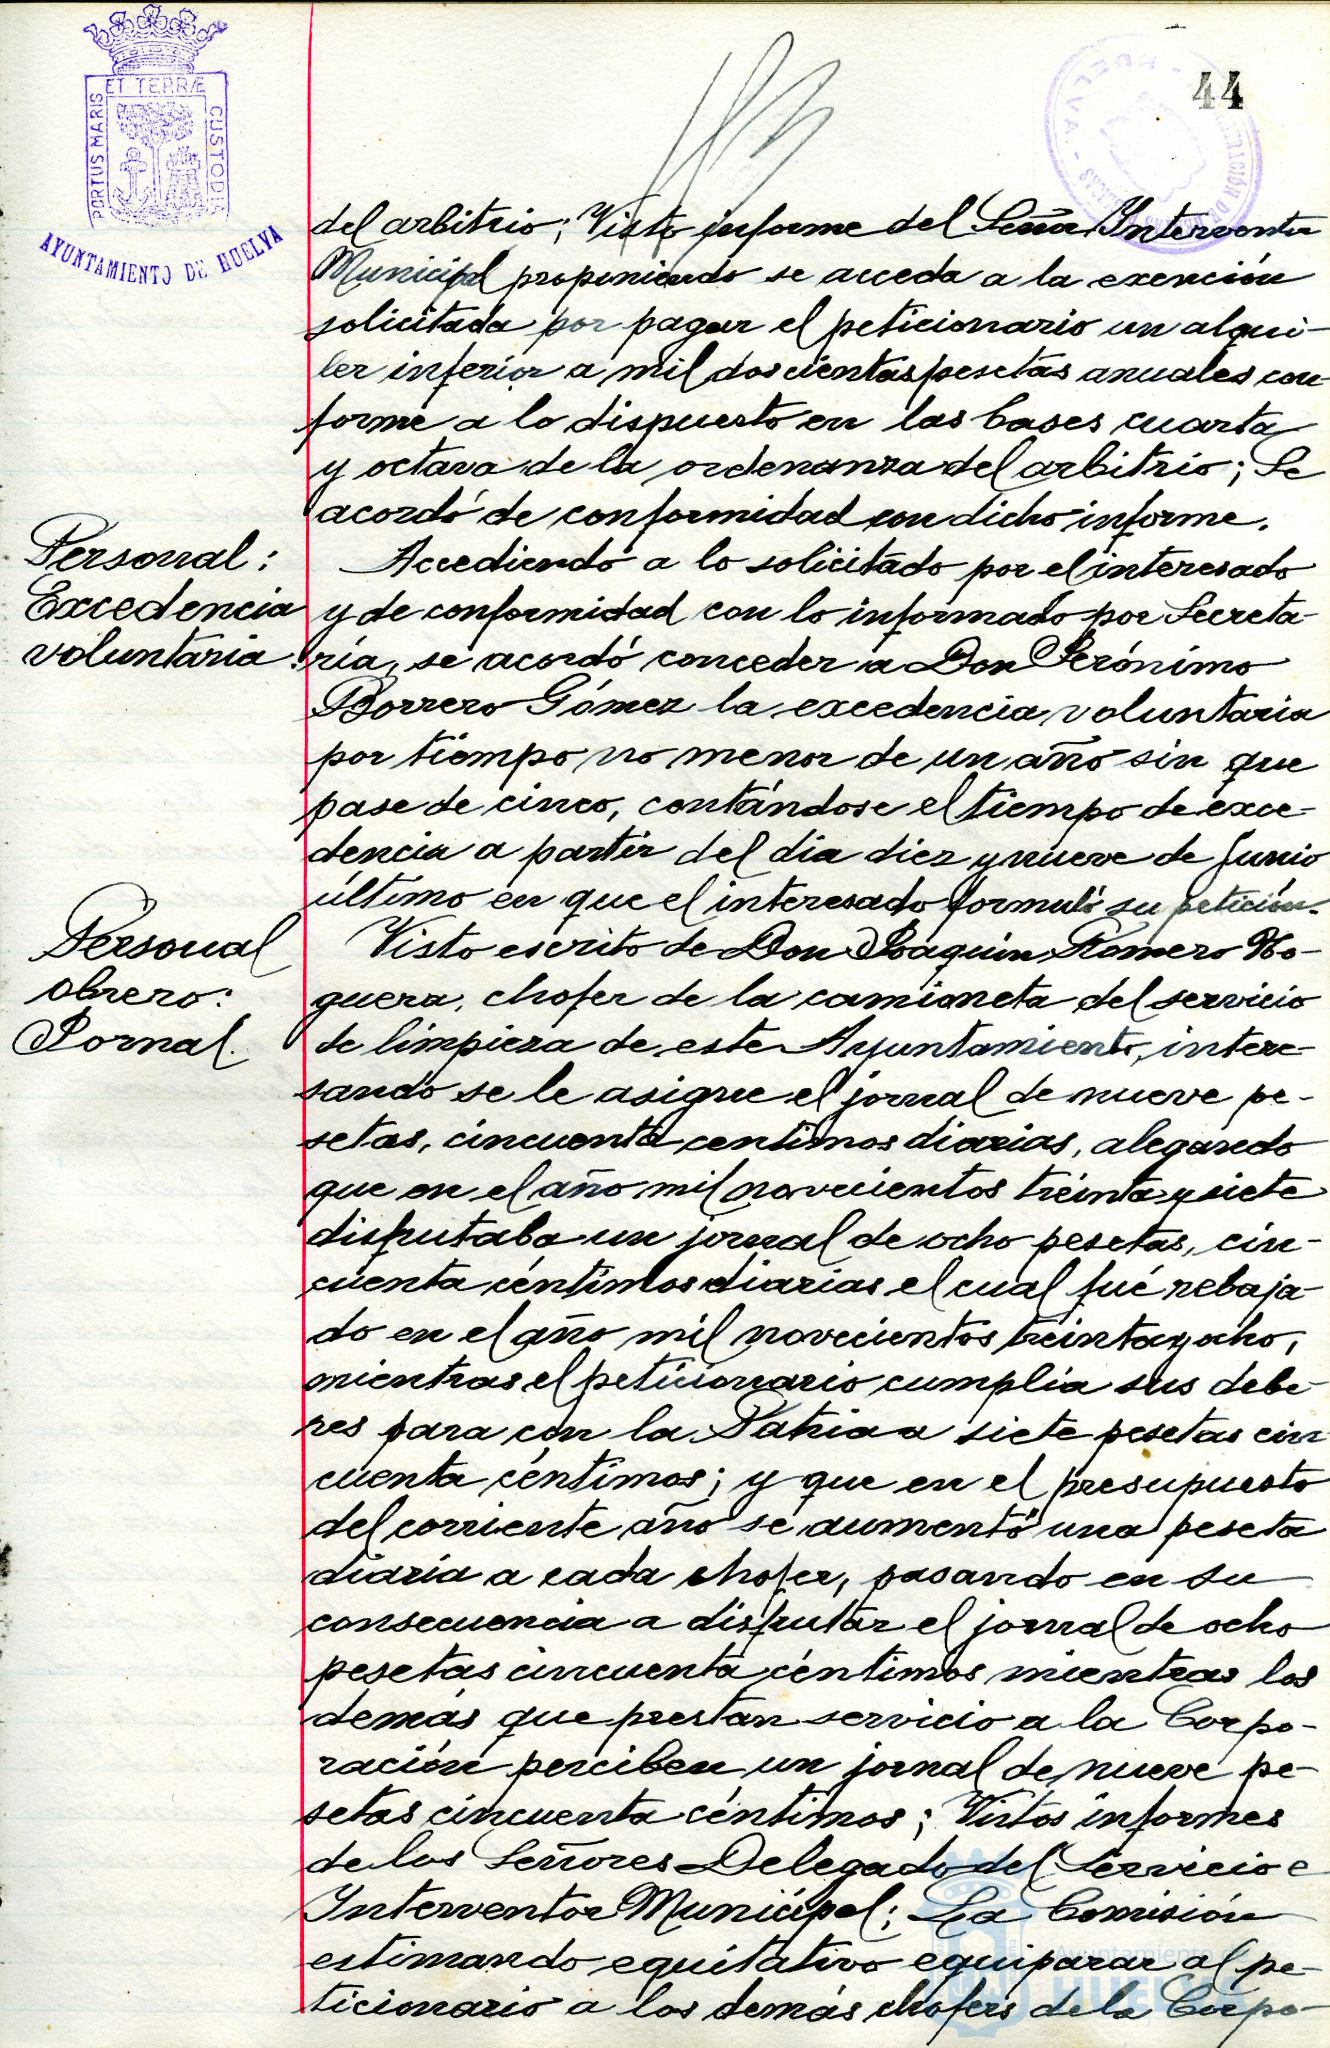 ET TERRÆ
PORTUS MARIS
CUSTODIA
AYUNTAMIENTO DE HUELVA
44
HUELVA
del arbitrio; Visto informe del Señor Interventor
Municipal proponiendo se acceda a la exención
solicitada por pagar el peticionario un alqui-
ler inferior a mil doscientas pesetas anuales con-
forme a lo dispuesto en las bases cuarta
y octava de la ordenanza del arbitrio; Se
acordó de conformidad con dicho informe.
Personal:
Excedencia
voluntaria.
Accediendo a lo solicitado por el interesado
y de conformidad con lo informado por Secreta-
ría, se acordó conceder a Don Jerónimo
Borrero Gómez la excedencia voluntaria
por tiempo no menor de un año sin que
pase de cinco, contándose el tiempo de exce-
dencia a partir del dia diez y nueve de Junio
último en que el interesado formuló su petición.
Personal
obrero:
Jornal.
Visto escrito de Don Joaquín Romero No-
guera, chofer de la camioneta del servicio
de limpieza de este Ayuntamiento, intere-
sando se le asigne el jornal de nueve pe-
setas, cincuenta centimos diarias, alegando
que en el año mil novecientos treinta y siete
disfrutaba un jornal de ocho pesetas, cin-
cuenta céntimos diarias el cual fué rebaja-
do en el año mil novecientos treinta y ocho,
mientras el peticionario cumplia sus debe-
res para con la Patria a siete pesetas cin
cuenta céntimos; y que en el presupuesto
del corriente año se aumentó una peseta
diaria a cada chofer, pasando en su
consecuencia a disfrutar el jornal de ocho
pesetas cincuenta céntimos mientras los
demás que prestan servicio a la Corpo-
ración perciben un jornal de nueve pe-
setas cincuenta céntimos; Vistos informes
de los Señores Delegado del Servicio e
Interventor Municipal; La Comisión
estimando equitativo equiparar al pe-
ticionario a los demás chofers de la Corpo-
Ayuntamiento de
HUELVA